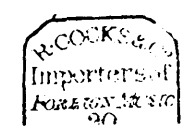 R. COCKS & Co
Importers of
FOREIGN MUSIC
20